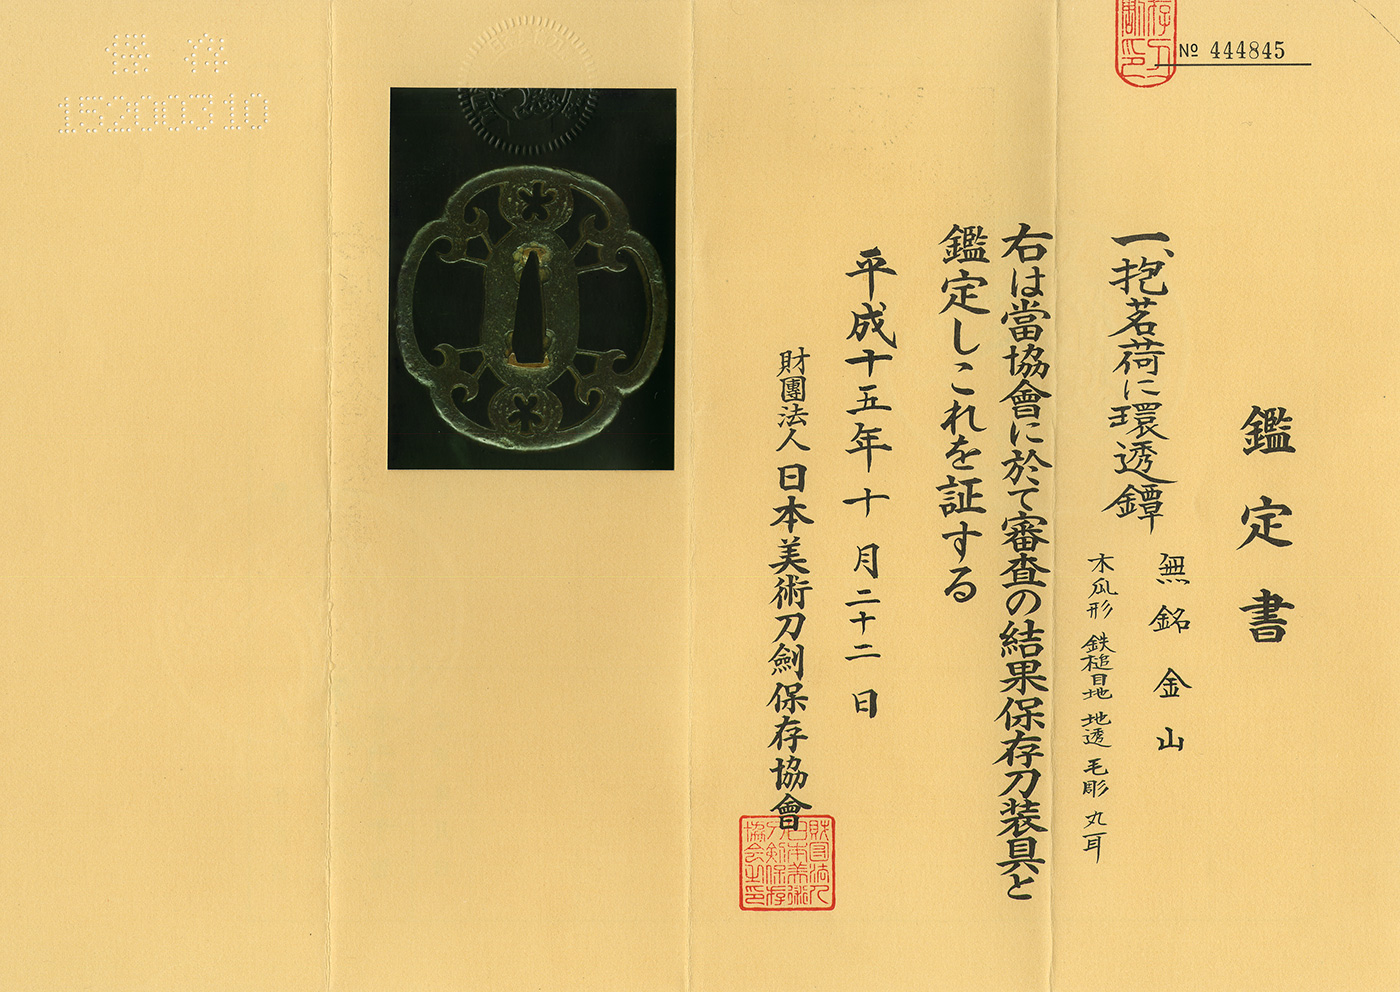 № 444845
鑑定書
一、抱茗荷に環透鐔
無銘 金山
木瓜形 鉄槌目地 地透 毛彫 丸耳
右は當協會に於て審査の結果保存刀装具と
鑑定しこれを証する
平成十五年十月二十二日
財團法人 日本美術刀劍保存協會
財団法人
日本美術
刀剣保存
協会之印
保存
15200310